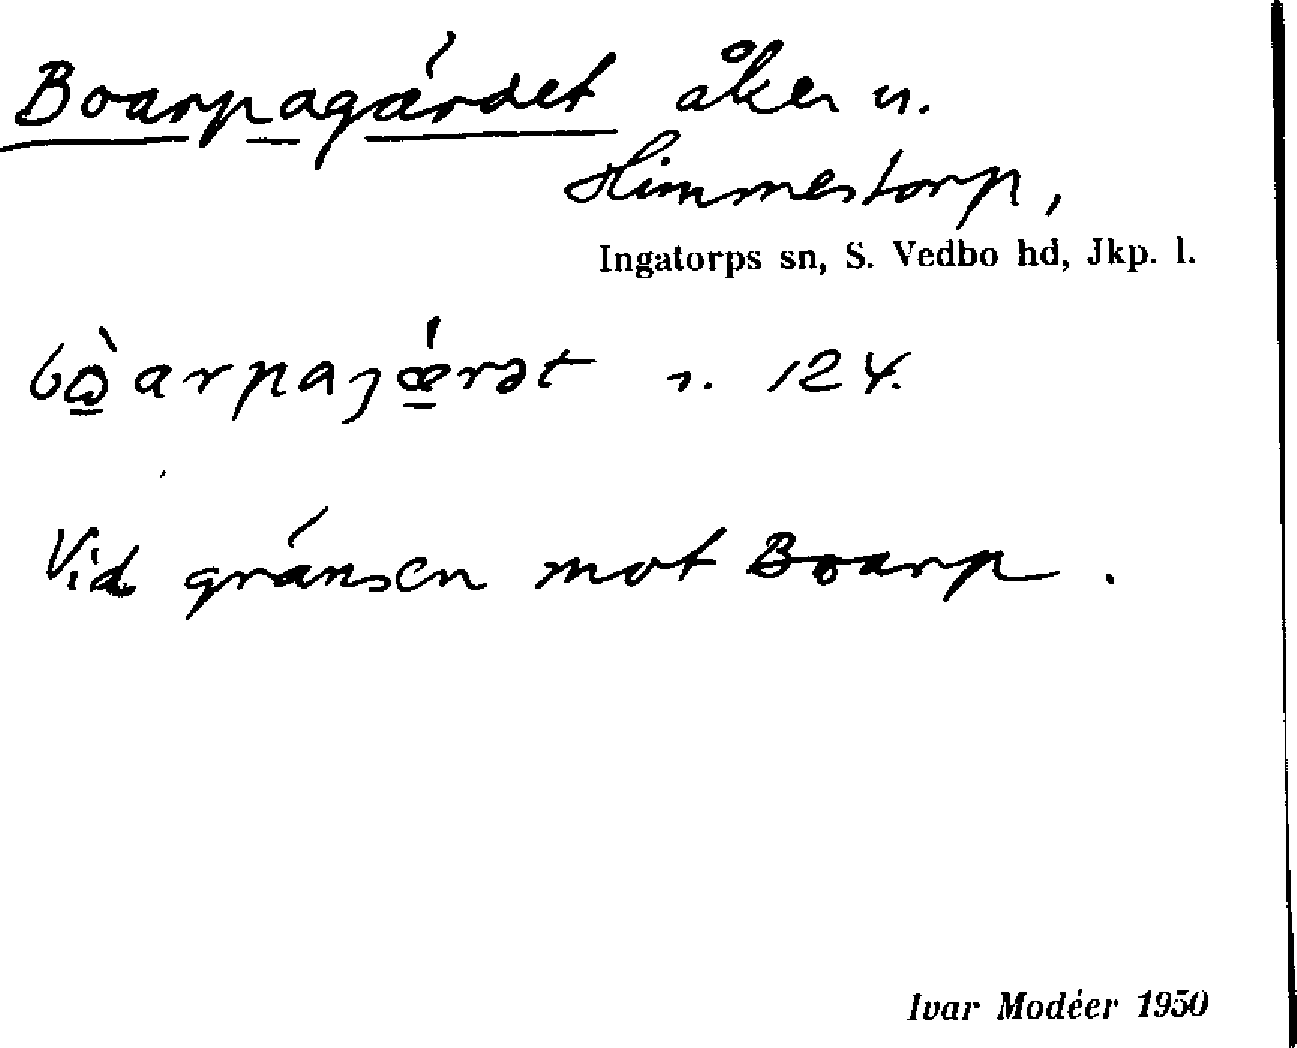 Boarpagärdet åker n.
Himmestorp,
Ingatorps sn, S. Vedbo hd, Jkp. l.
bɷ̀arpajǽrət n. 124.
Vid gränsen mot Boarp.
Ivar Modéer 1950